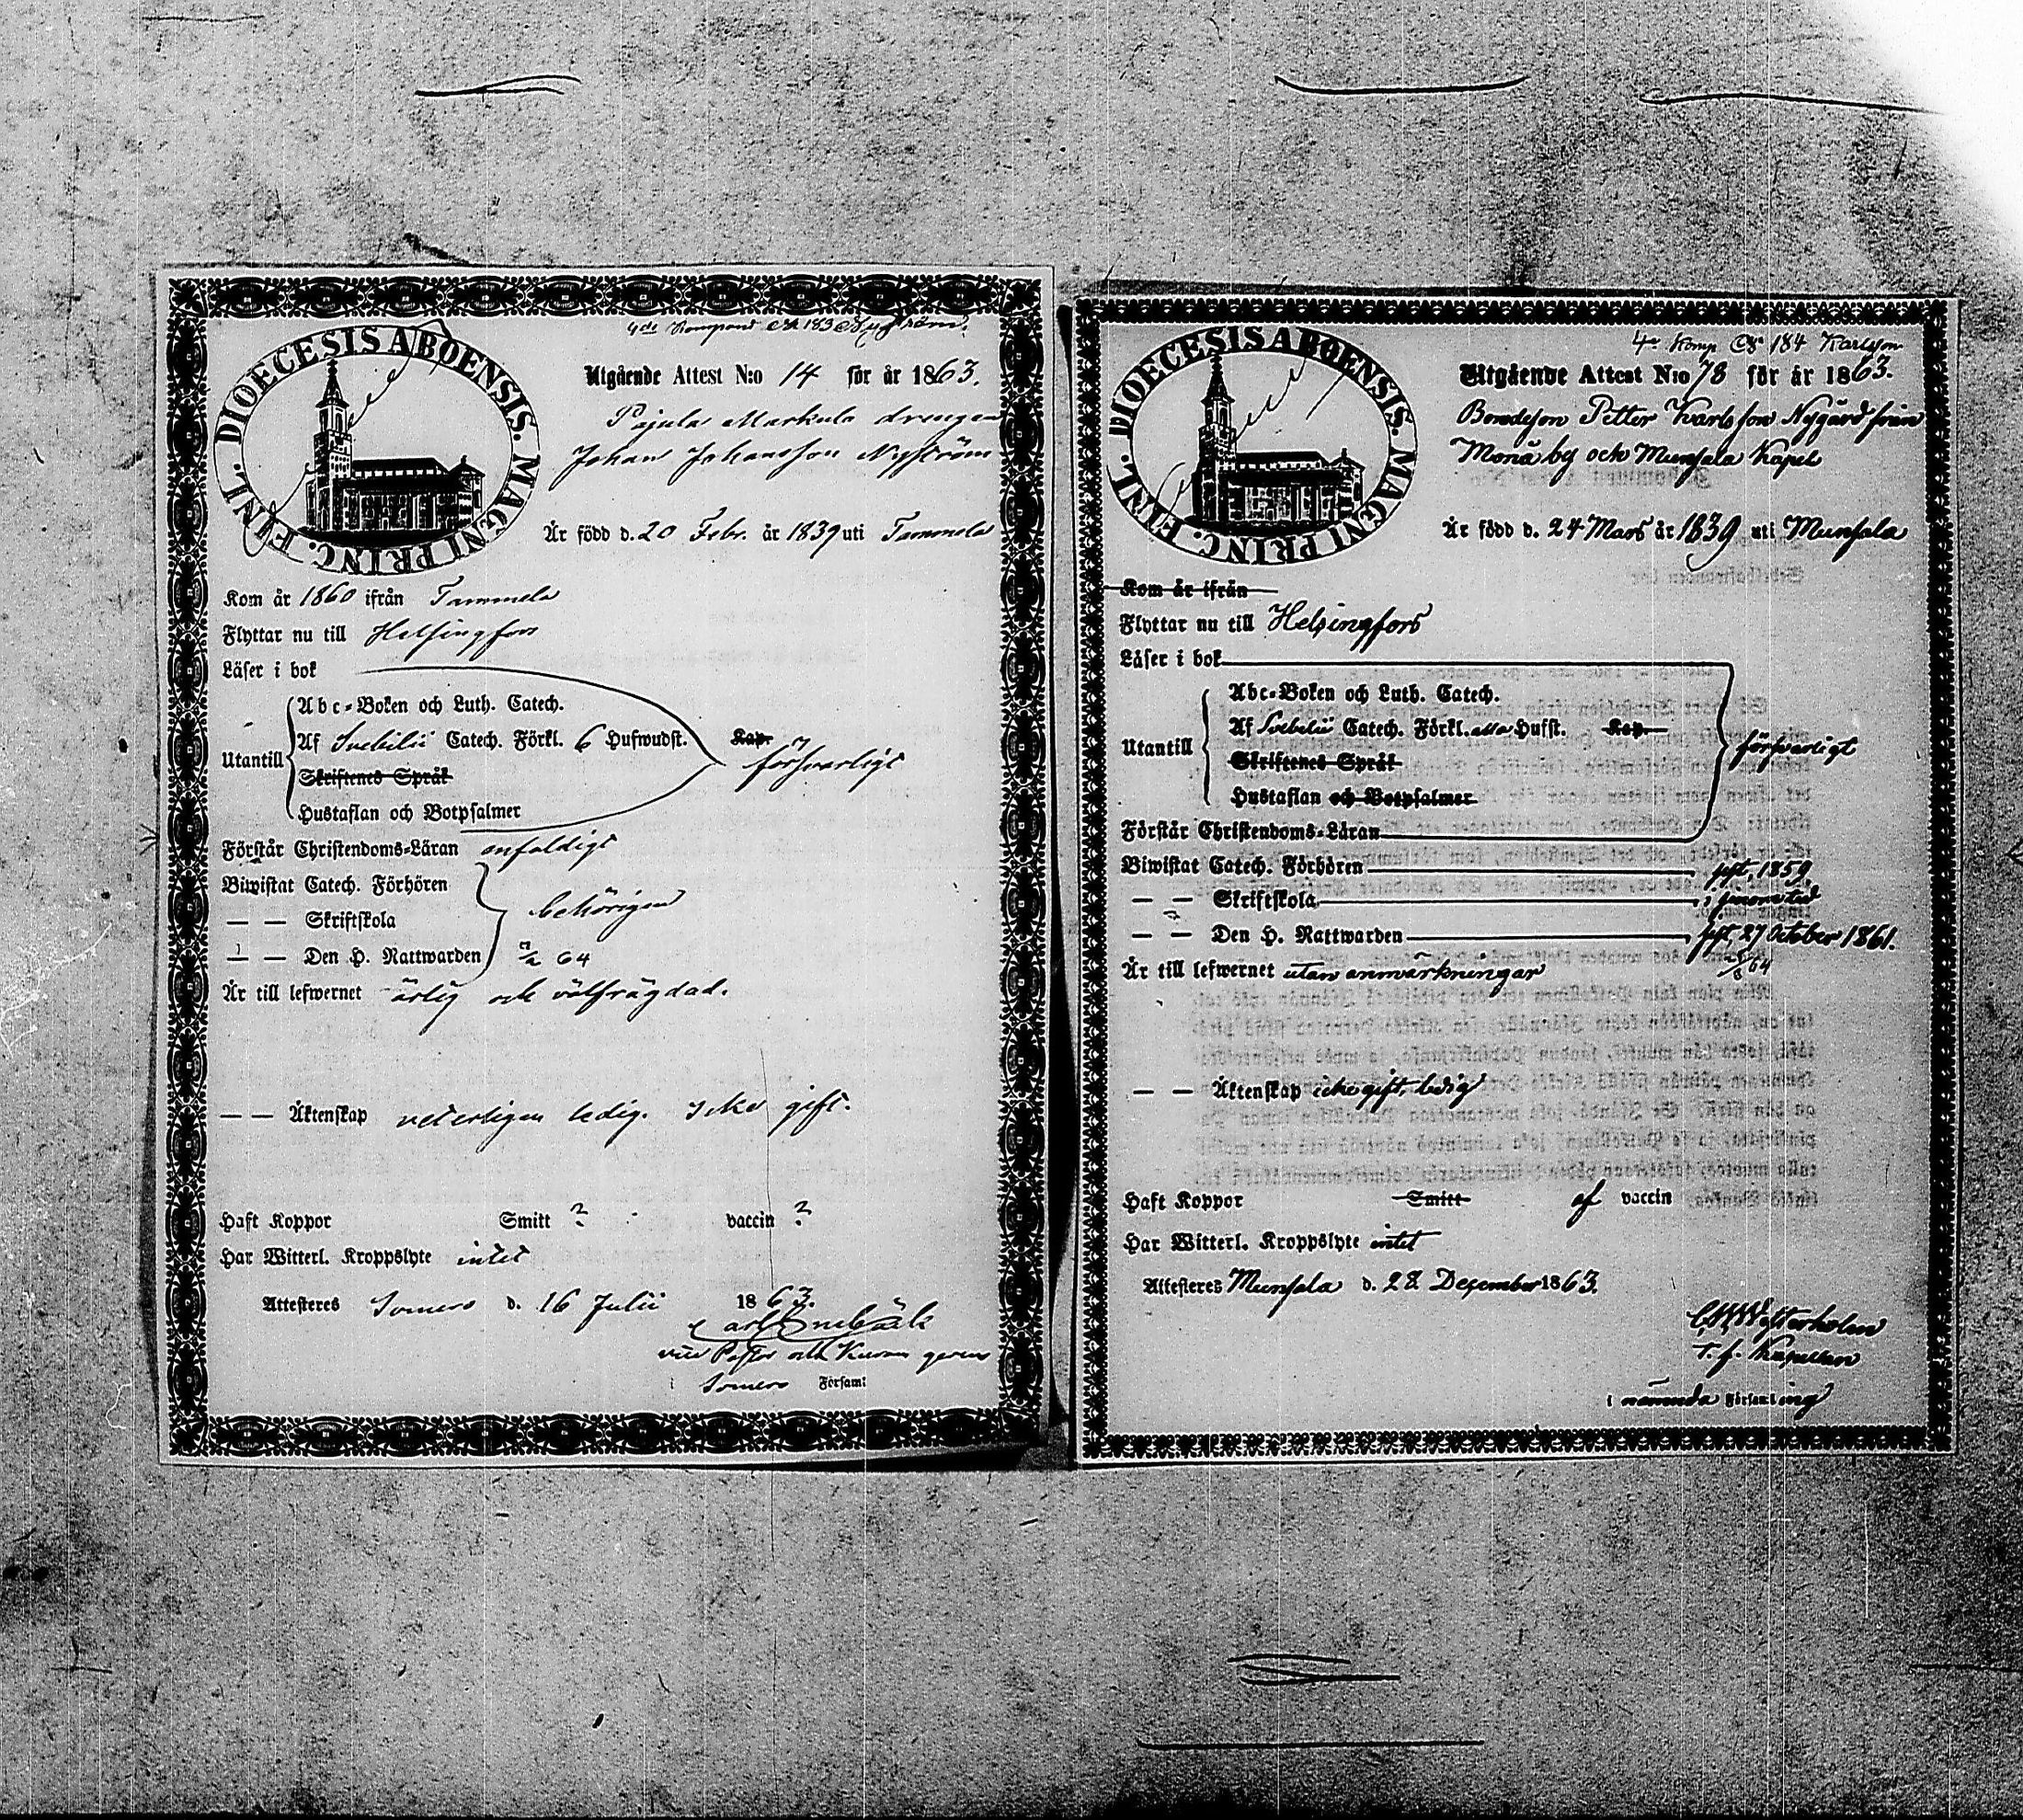 4de Kompani № 183 Nyström.
DIOECESIS ABOENSIS. MAGNI PRINC. FINL.
Utgående Attest N:o 14 för år 1863.
Pajula Markula drengen
Johan Johansson Nyström
Är född d. 20 Febr. år 1839 uti Tammela
Kom år 1860 ifrån Tammela
Flyttar nu till Helsingfors
Läser i bok
Abc-Boken och Luth. Catech.
Utantill Af Svebilii Catech. Förkl. 6 Hufwudst. Kap. försvarligt
Skriftenes Språk
Hustaflan och Botpsalmer
Förstår Christendoms-Läran enfaldigt
Biwistat Catech. Förhören
— — Skriftskola behörigen
— — Den H. Nattwarden 64
Är till lefwernet ärlig och välfrägdad.
— — Äktenskap veterligen ledig. Icke gift.
Haft Koppor Smitt ? vaccin ?
Har Witterl. Kroppslyte intet
Attesteres Somero d. 16 Julii 1863.
Carl Enebäck
vice Pastor och Kyrkoh. gerens
i Somero Församl
4e Komp № 184 Karlsson
DIOECESIS ABOENSIS. MAGNI PRINC. FINL.
Utgående Attest N:o 78 för år 1863.
Bondeson Petter Karlsson Nygård från
Monå by och Munsala Kapel
Är född d. 24 Mars år 1839 uti Munsala
Kom år ifrån
Flyttar nu till Helsingfors
Läser i bok
Abc-Boken och Luth. Catech.
Utantill Af Svebelii Catech. Förkl. alla Hufst. Kap. försvarligt
Skriftenes Språk
Hustaflan och Botpsalmer
Förstår Christendoms-Läran
Biwistat Catech. Förhören sist, 1859
— — Skriftskola i sinom tid
— — Den H. Nattwarden sist, 27 October 1861.
64
Är till lefwernet utan anmärkningar
— — Äktenskap icke gift, ledig
Haft Koppor Smitt af vaccin
Har Witterl. Kroppslyte intet
Attesteres Munsala d. 28 December 1863.
Wefterholm
T. f. Kapellan
i nämnda Församling